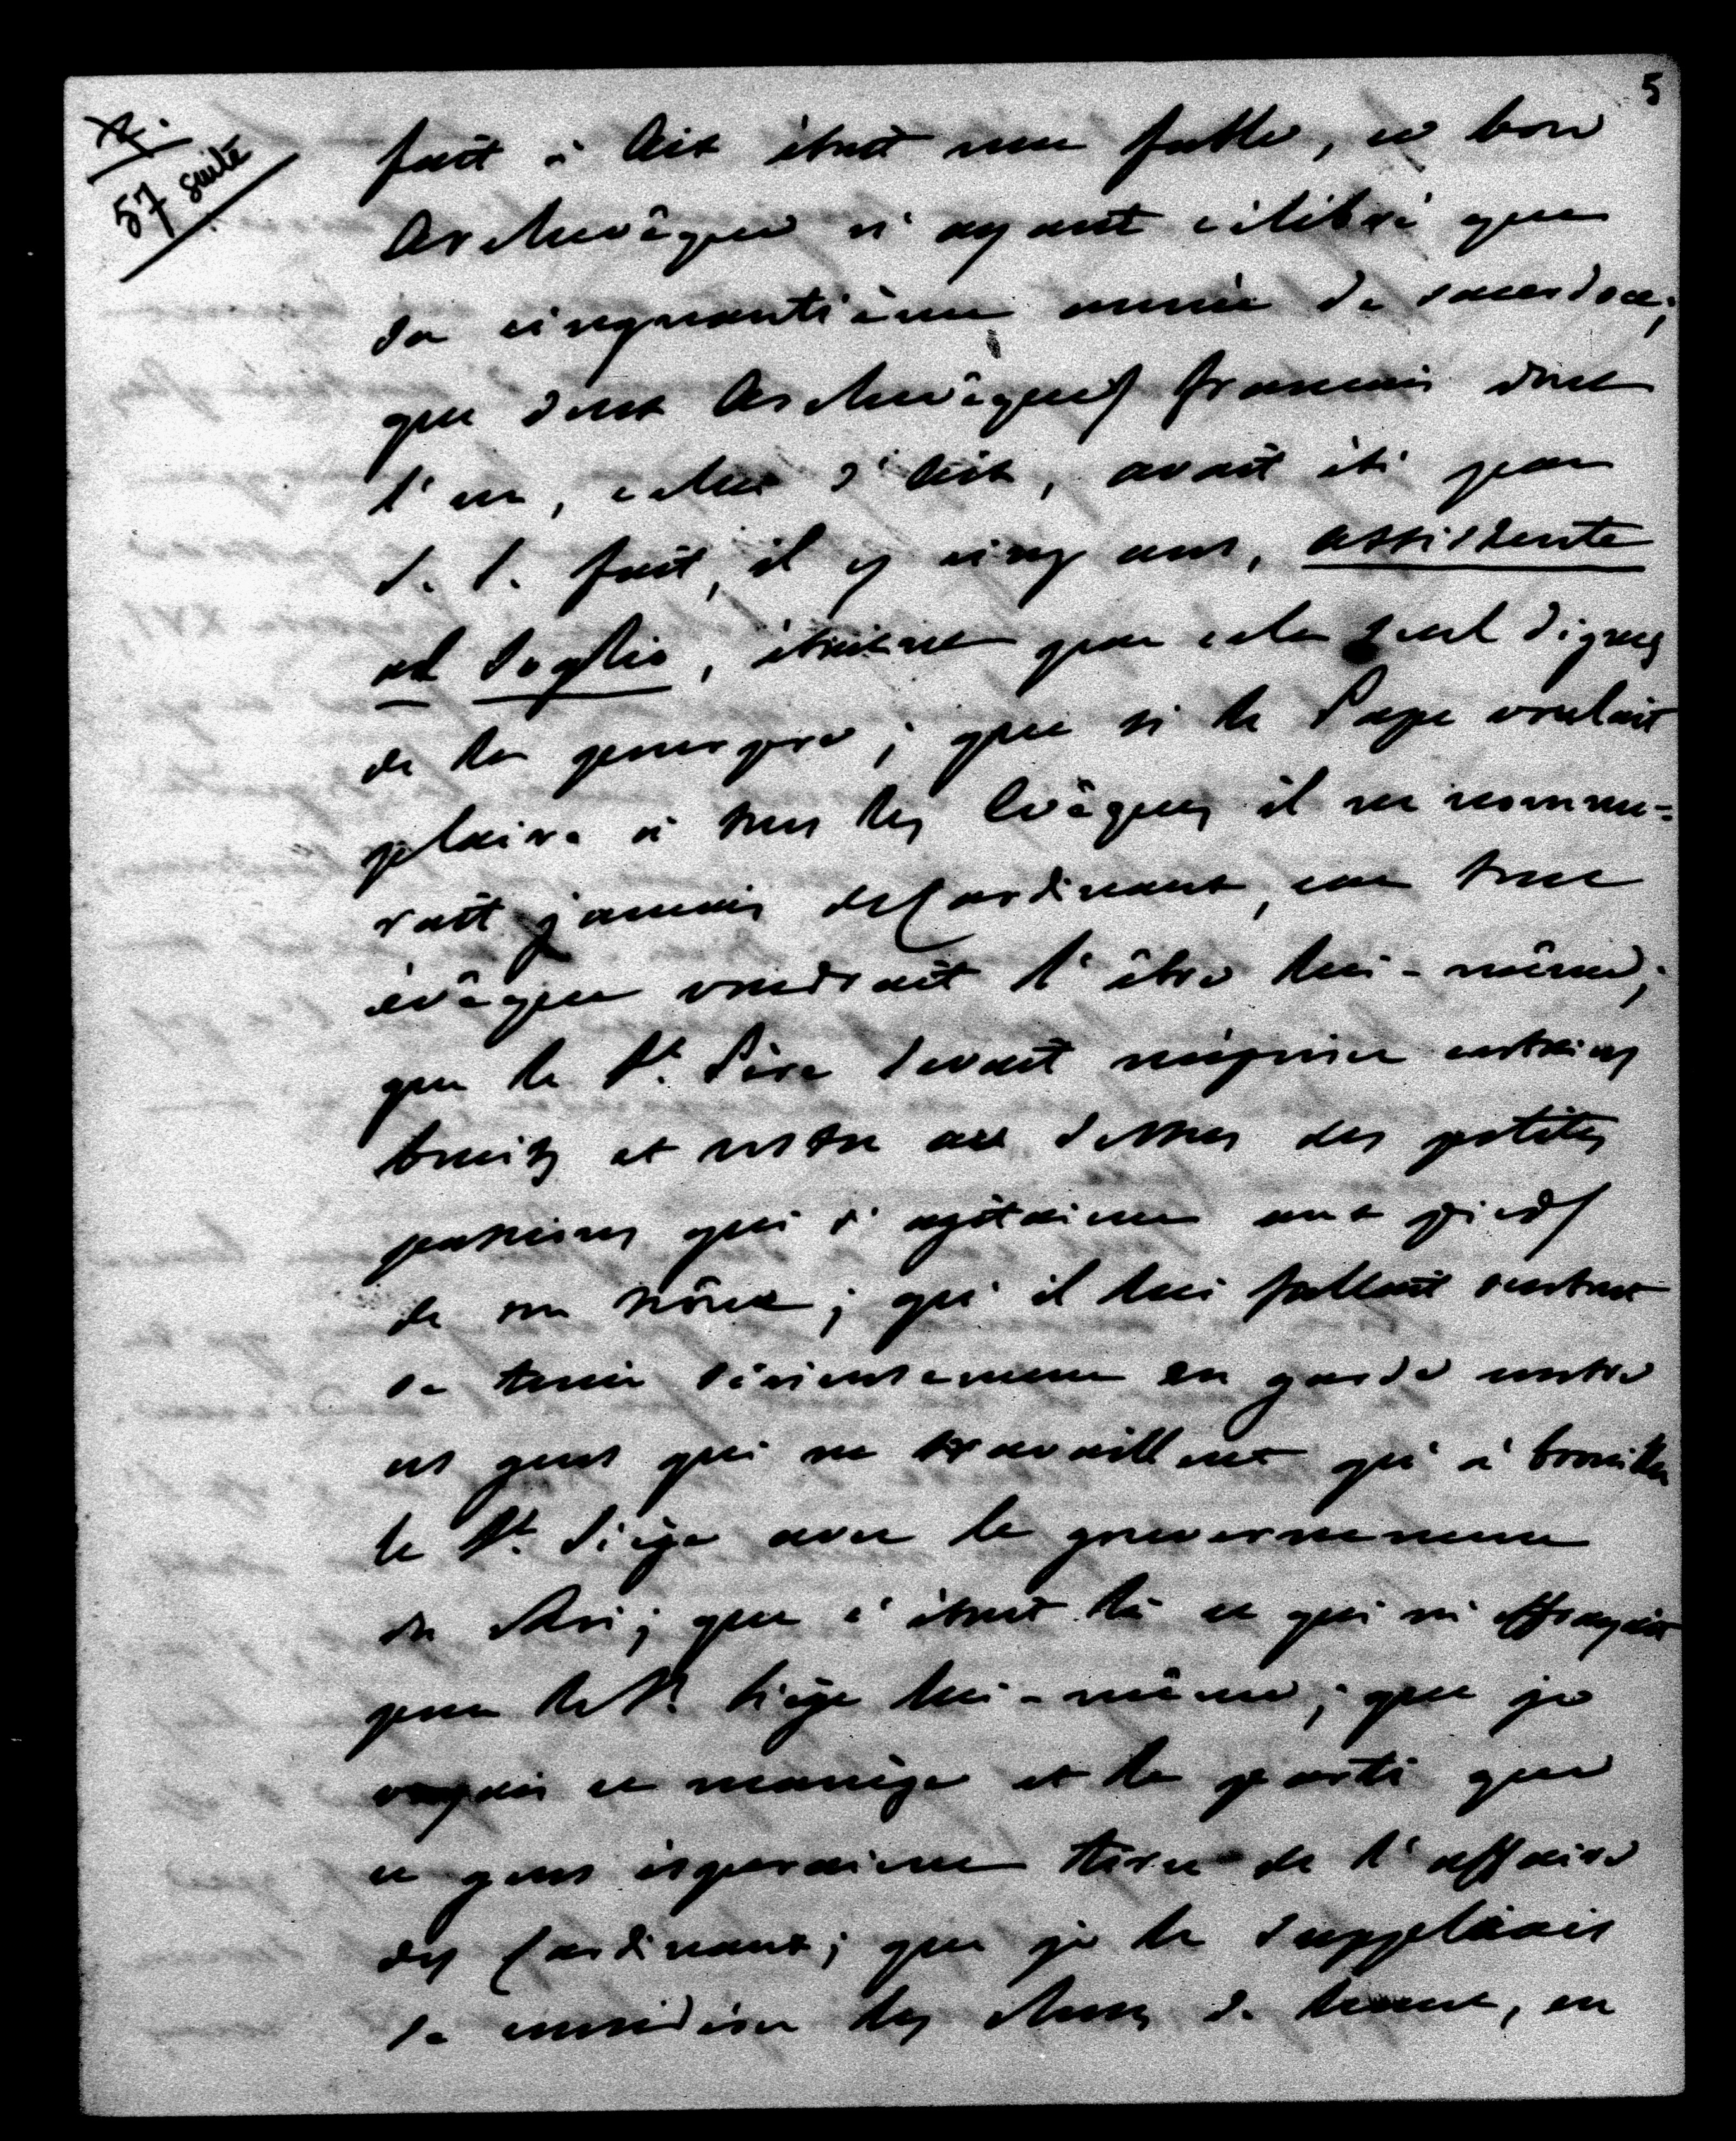 5
57 suite
fait à Aix était une fable, ce bon
Archevêque n'ayant célébré que
sa cinquantième année de sacerdoce;
que deux Archevêques français dont
l'un, celui d'Aix, avait été par
S. S. fait, il y cinq ans, assistente
al soglio, étaient par cela seul dignes
de la pourpre; que si le Pape voulait
plaire à tous les Evêques il ne nomme=
rait jamais de Cardinaux, car tout
évêque voudrait l'être lui-même;
que le St. Père devait mépriser certains
bruits et rester au dessus des petites
passions qui s'agitaient aux pieds
de son trône; qu'il lui fallait surtout
se tenir sérieusement en garde contre
ces gens qui ne travaillent qu'à brouiller
le St. Siège avec le gouvernement
du Roi; que c'était là ce qui m'effrayait
pour le St. Siège lui-même; que je
voyais ce manège et le parti que
ces gens espéraient tirer de l'affaire
des Cardinaux; que je le suppliais
de considérer les choses de haut, en